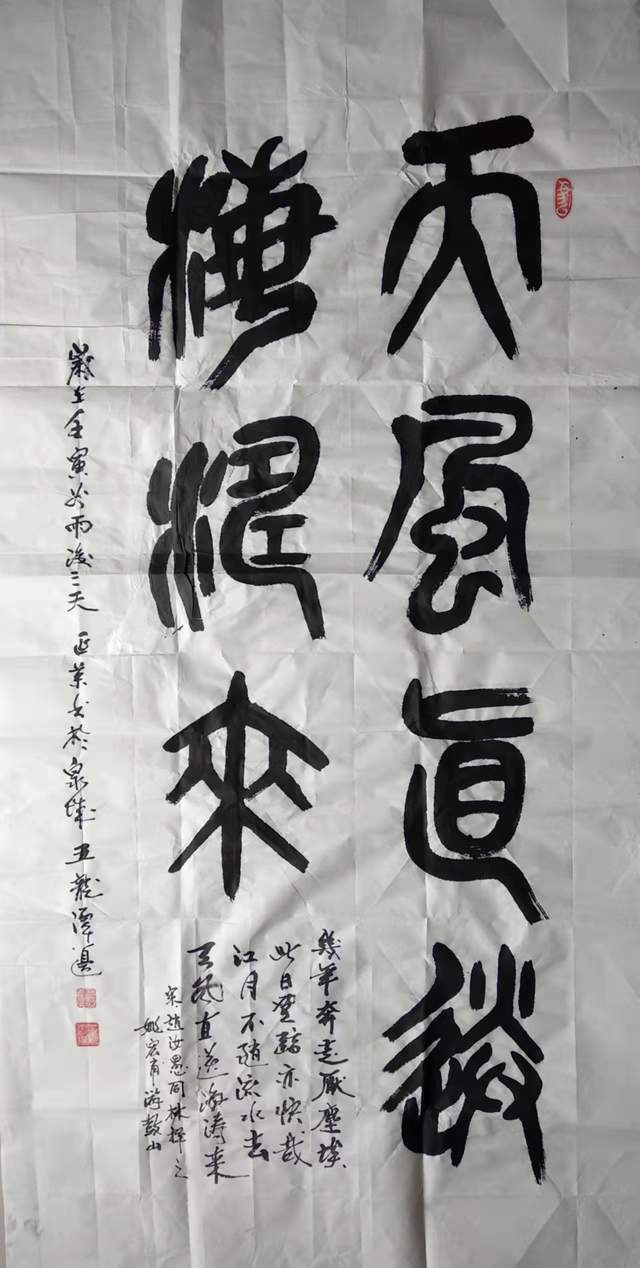 天風直送
海濤來
幾年奔走厭塵埃
此日登臨亦快哉
江月不隨流水去
天风直送海涛来
宋趙汝愚同林擇之
姚宏甫游鼓山
歲在壬寅谷雨後三天 正業书於泉城五龍潭邊